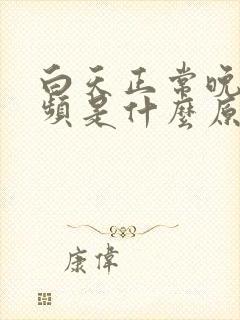 白天正常晚
頻是什麼原
康偉